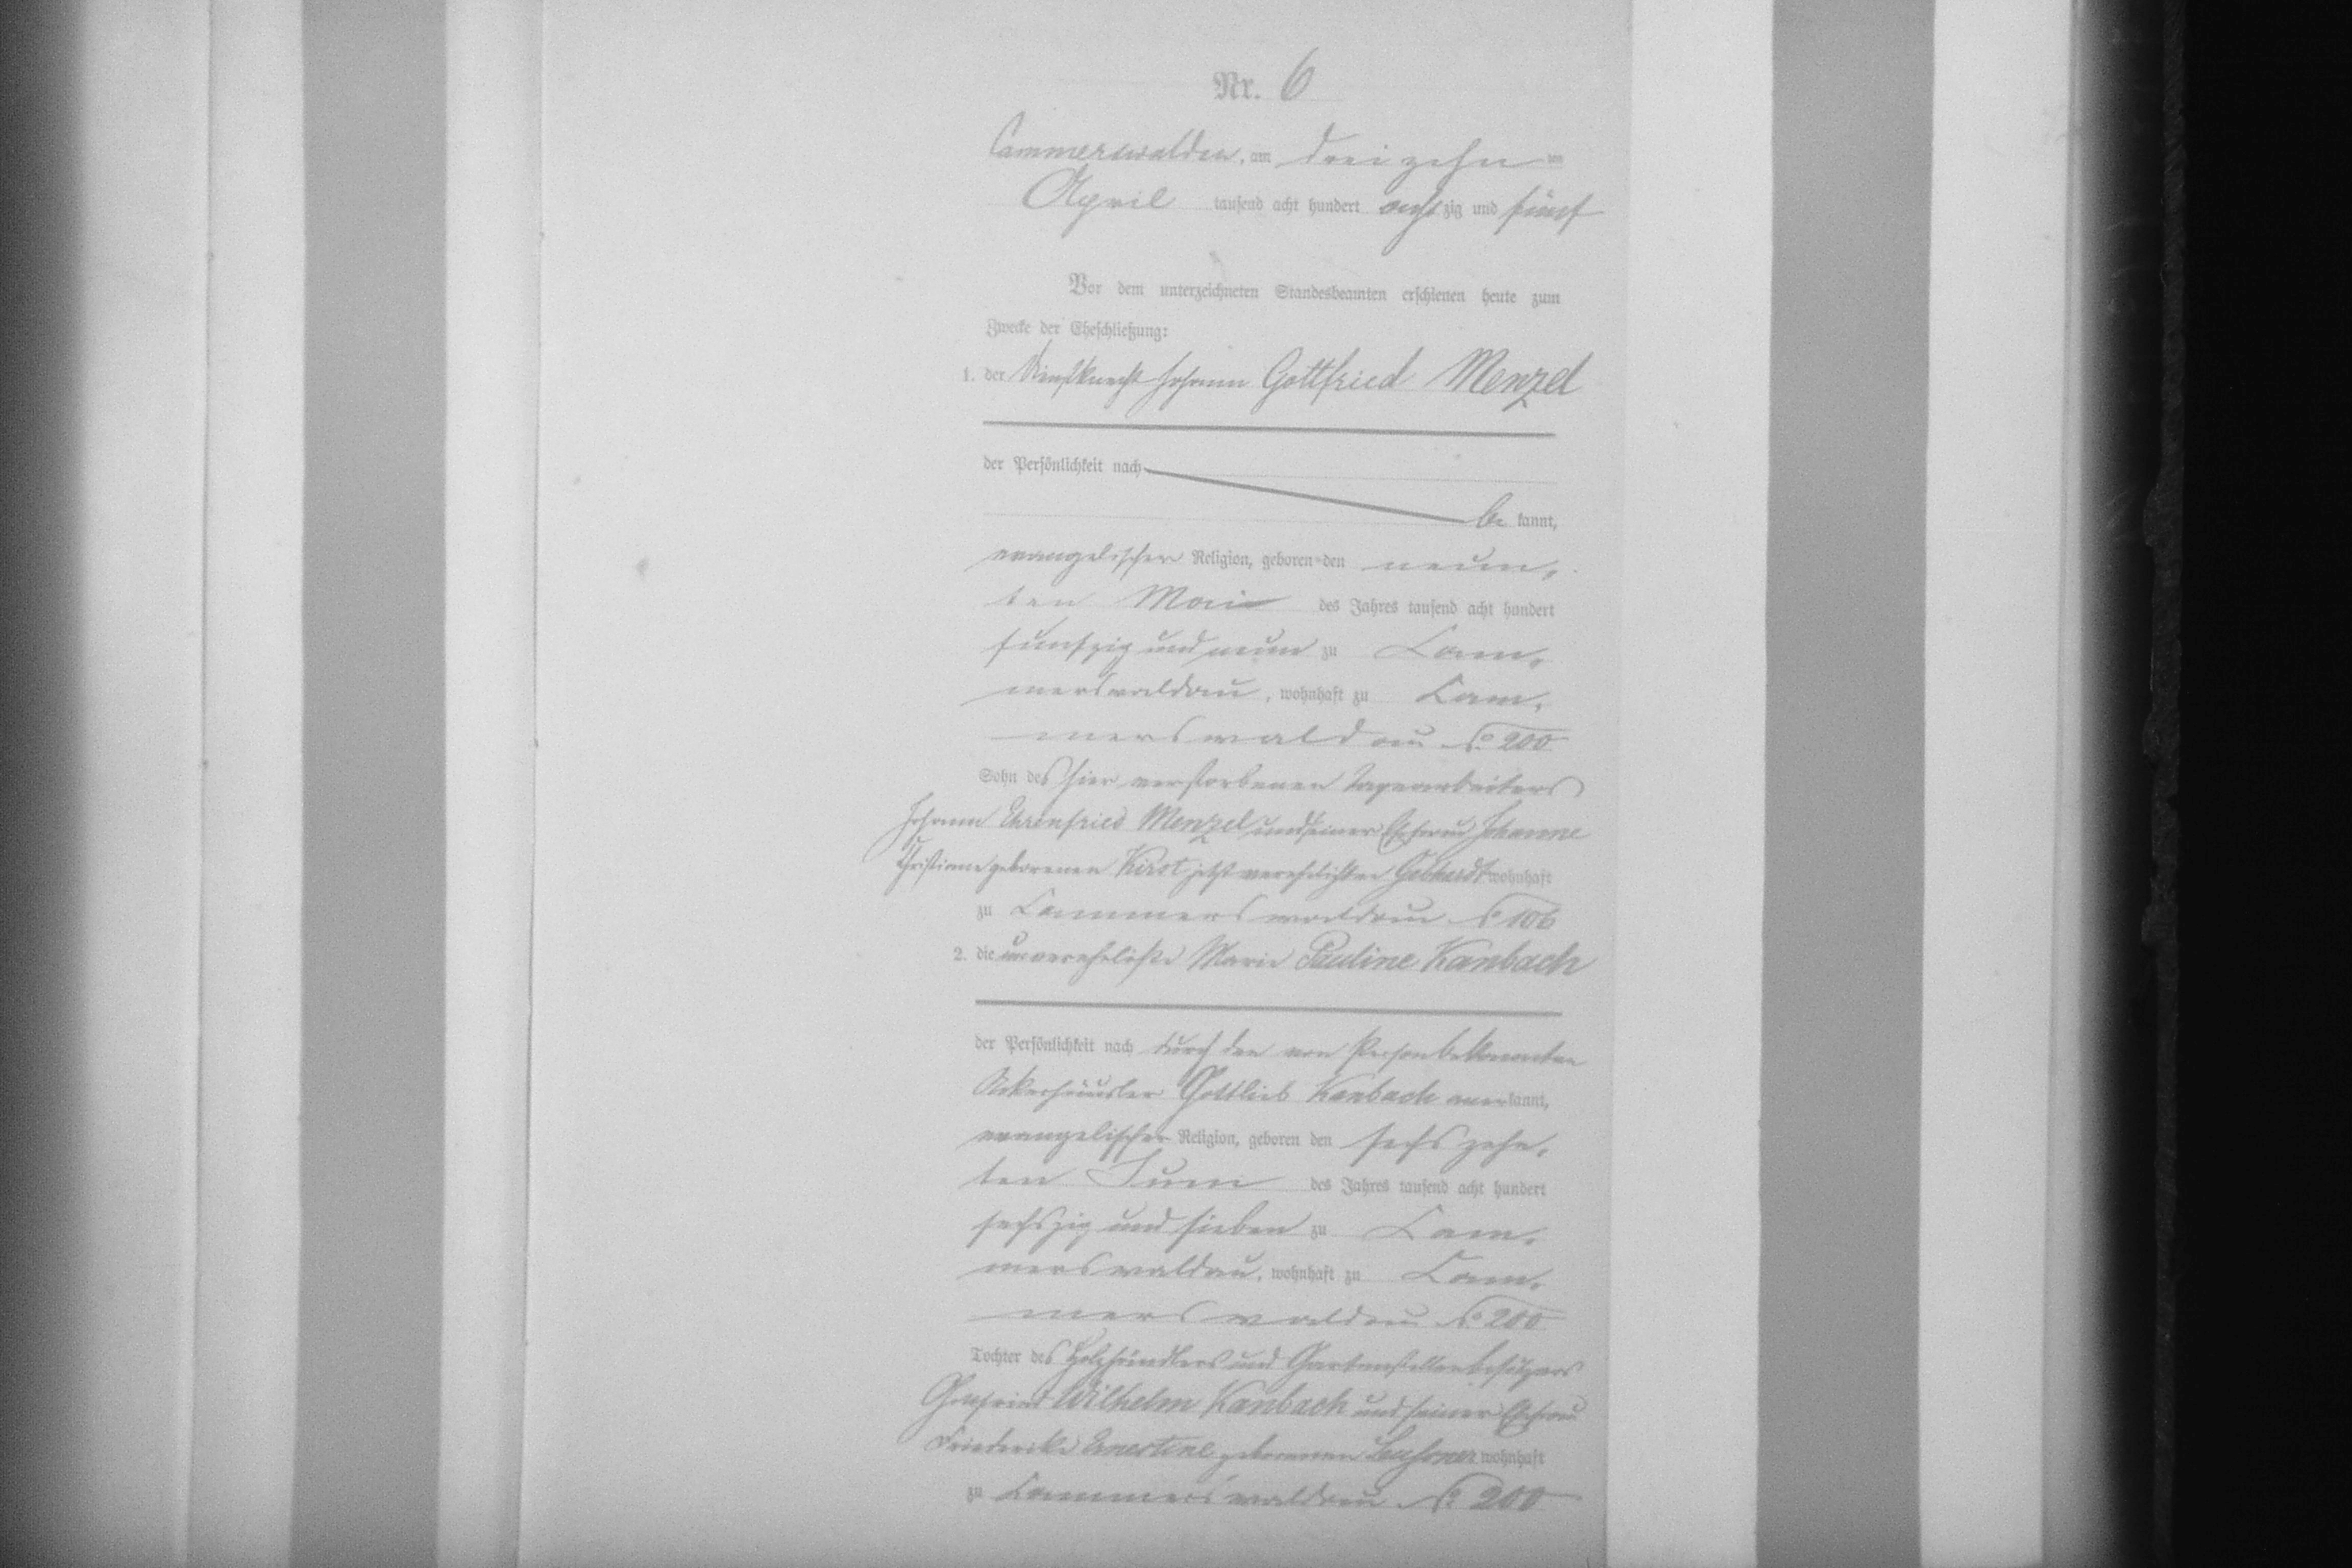 Nr. 6
Cammerswaldau, am dreizehn ten
April tausend acht hundert achtzig und fünf
Vor dem unterzeichneten Standesbeamten erschienen heute zum
Zwecke der Eheschließung:
1. der Dienstknecht Johann Gottfried Menzel
der Persönlichkeit nach
be kannt,
evangelischer Religion, geboren den neun-
ten Mai des Jahres tausend acht hundert
fünfzig und neun zu Cam-
merswaldau, wohnhaft zu Cam-
merswaldau No 200
Sohn des hier verstorbenen Tagearbeiters
Johann Ehrenfried Menzel und seiner Ehefrau Johanne
Christiane geborenen Kirst jetzt verehelichten Gebhardt wohnhaft
zu Cammerswaldau No 106
2. die unverehelichte Marie Pauline Kanbach
der Persönlichkeit nach durch den von Person bekannten
Ackerhäusler Gottlieb Kanbach anerkannt,
evangelischer Religion, geboren den sechszehn-
ten Juni des Jahres tausend acht hundert
sechszig und sieben zu Cam-
merswaldau, wohnhaft zu Cam-
merswaldau No 200
Tochter des Holzhändlers und Gartenstellenbesitzers
Wilhelm Kanbach und seiner Ehefrau
Friederike Ernestine geborenen wohnhaft
zu Cammerswaldau No 200